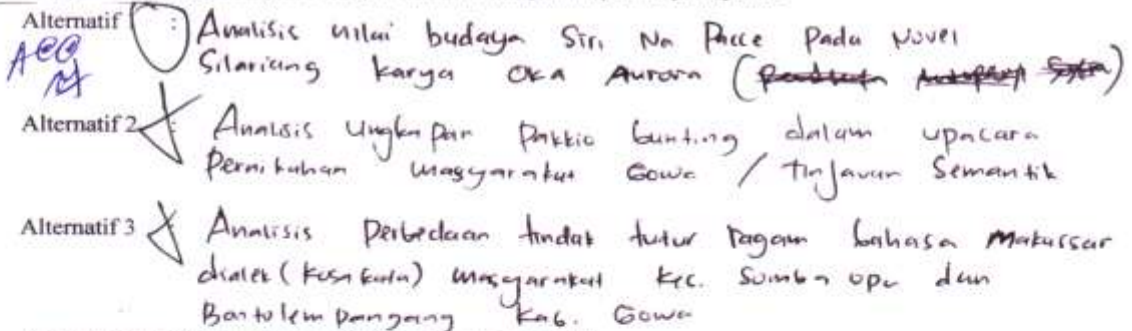 Alternatif : Analisis nilai budaya Siri Na Pacce Pada Novel
ACC Silariang karya Oka Aurora ( )
Alternatif 2 : Analisis Ungkapan Pakkio bunting dalam upacara
Pernikahan masyarakat Gowa / Tinjauan Semantik
Alternatif 3 Analisis Perbedaan tindak tutur ragam bahasa Makassar
dialek (kosa kata) masyarakat Kec. Somba opu dan
Bontolempangang Kab. Gowa